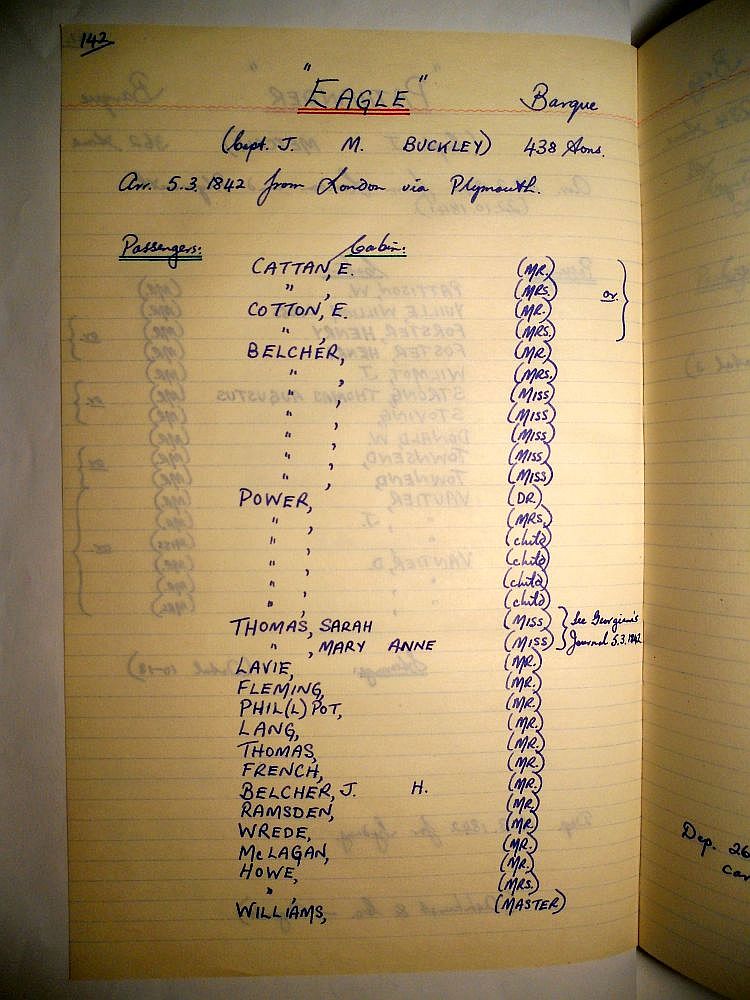 142
"EAGLE" Barque
(Capt. J. M. BUCKLEY) 438 tons.
Arr. 5.3.1842 from London via Plymouth.
Passengers: Cabin:
CATTAN, E. (MR.)
" , (MRS.) or
COTTON, E. (MR.)
" , (MRS.)
BELCHER, (MR.)
" , (MRS.)
" , (MISS)
" , (MISS)
" , (MISS)
" , (MISS)
" , (MISS)
POWER, (DR.)
" , (MRS.)
" , (child)
" , (child)
" , (child)
" , (child)
THOMAS, SARAH (MISS) See Georgiana's
" , MARY ANNE (MISS) Journal 5.3.1842
LAVIE, (MR.)
FLEMING, (MR.)
PHIL(L)POT, (MR.)
LANG, (MR.)
THOMAS, (MR.)
FRENCH, (MR.)
BELCHER, J. H. (MR.)
RAMSDEN, (MR.)
WREDE, (MR.)
McLAGAN, (MR.)
HOWE, (MR.)
" , (MRS.)
WILLIAMS, (MASTER)
Dep. 26